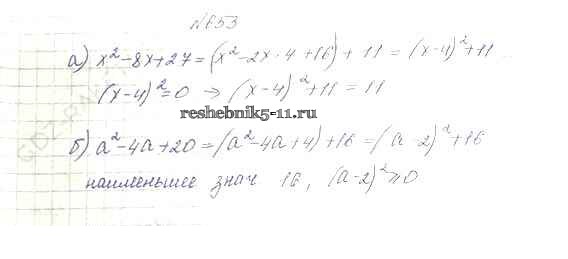 №653
а) x²-8x+27=(x²-2x·4+16)+11=(x-4)²+11
(x-4)²=0 → (x-4)²+11=11
reshebnik5-11.ru
б) a²-4a+20=(a²-4a+4)+16=(a 2)²+16
наименьшее знач 16, (a-2)²≥0